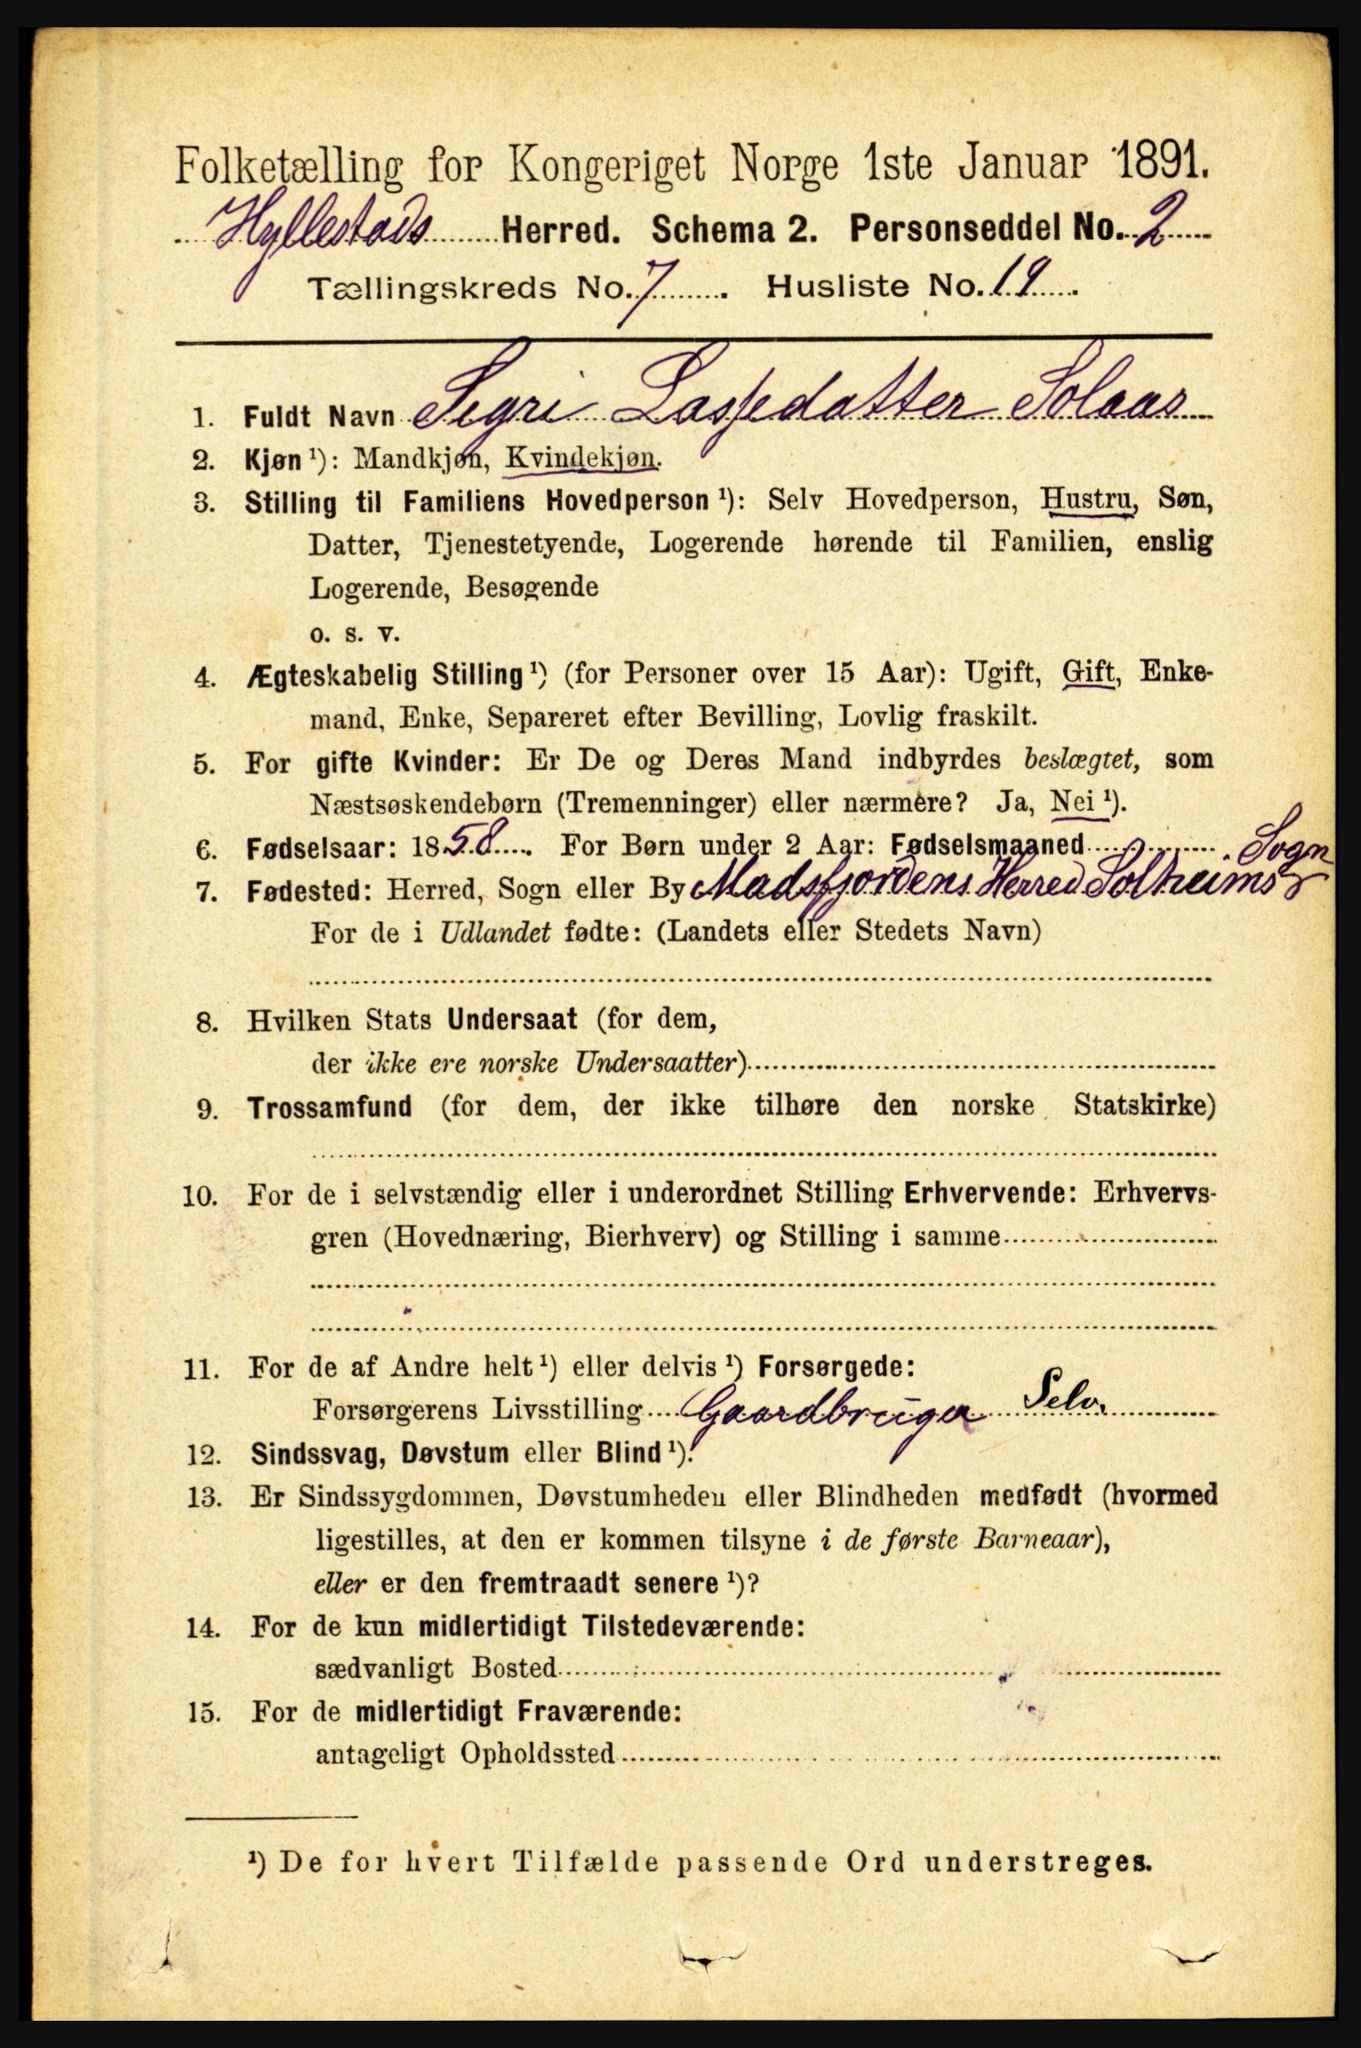 Folketælling for Kongeriget Norge 1ste Januar 1891.
Hyllestads Herred. Schema 2. Personseddel No. 2
Tællingskreds No. 7 Husliste No. 19
1. Fuldt Navn Sigri Lassedatter Solaas
2. Kjøn ¹): Mandkjøn, Kvindekjøn.
3. Stilling til Familiens Hovedperson ¹): Selv Hovedperson, Hustru, Søn,
Datter, Tjenestetyende, Logerende hørende til Familien, enslig
Logerende, Besøgende
o. s. v.
4. Ægteskabelig Stilling ¹) (for Personer over 15 Aar): Ugift, Gift, Enke-
mand, Enke, Separeret efter Bevilling, Lovlig fraskilt.
5. For gifte Kvinder: Er De og Deres Mand indbyrdes beslægtet, som
Næstsøskendebørn (Tremenninger) eller nærmere? Ja, Nei ¹).
6. Fødselsaar: 1858. For Børn under 2 Aar: Fødselsmaaned
7. Fødested: Herred, Sogn eller By Madsfjordens Herred Solheims Sogn
For de i Udlandet fødte: (Landets eller Stedets Navn)
8. Hvilken Stats Undersaat (for dem,
der ikke ere norske Undersaatter)
9. Trossamfund (for dem, der ikke tilhøre den norske Statskirke)
10. For de i selvstændig eller i underordnet Stilling Erhvervende: Erhvervs-
gren (Hovednæring, Bierhverv) og Stilling i samme
11. For de af Andre helt ¹) eller delvis ¹) Forsørgede:
Forsørgerens Livsstilling Gaardbruger Selv.
12. Sindssvag, Døvstum eller Blind ¹).
13. Er Sindssygdommen, Døvstumheden eller Blindheden medfødt (hvormed
ligestilles, at den er kommen tilsyne i de første Barneaar),
eller er den fremtraadt senere ¹)?
14. For de kun midlertidigt Tilstedeværende:
sædvanligt Bosted
15. For de midlertidigt Fraværende:
antageligt Opholdssted
¹) De for hvert Tilfælde passende Ord understreges.